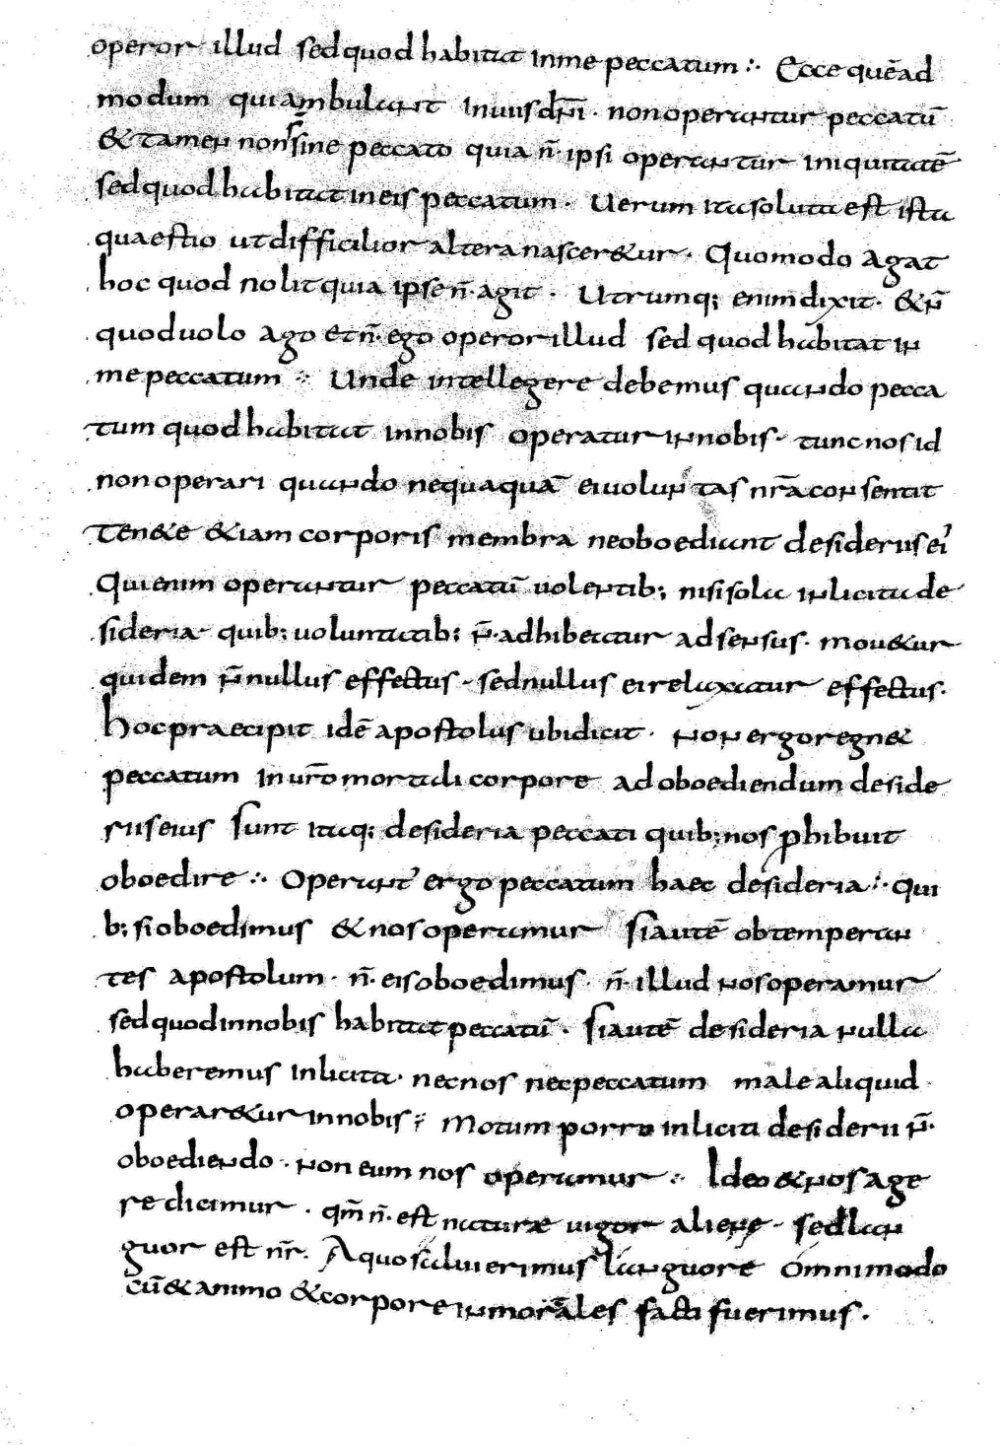 operor illud sed quod habitat in me peccatum ∴ Ecce quēad
modum qui ambulant in uiis dn̄i · non operantur peccatū
& tamen non sine peccato quia n̄ ipsi operantur iniquitatē
sed quod habitat in eis peccatum · Uerum ita soluta est ista
quaestio ut difficilior altera nascer&ur · Quomodo agat
hoc quod nolit quia ipse n̄ · agit · Utrumq; enim dixit · & n̄
quod uolo ago et n̄ · ego operor illud sed quod habitat in
me peccatum ∴ Unde intellegere debemus quando pecca
tum quod habitat in nobis operatur in nobis · tunc nos id
non operari quando nequaquā ei uoluntas nr̄a consentit
Ten&e &iam corporis membra ne oboediant desideriis ei'
Qui enim operantur peccatū uolentib; nisi sola inlicita de
sideria quib; uoluntatib; n̄ · adhibeatur adsensus · mou&ur
quidem n̄ nullus effectus · sed nullus ei relaxatur effectus ·
hoc praecipit idē apostolus ubi dicit · non ergo regn&
peccatum in ur̄o mortali corpore ad oboediendum deside
riis eius Sunt itaq; desideria peccati quib; nos phibuit
oboedire ∴ Operant' ergo peccatum haec desideria ∴ qui
b; si oboedimus & nos operamur Si autē obtemperan
tes apostolum · n̄ · eis oboedimus n̄ · illud nos operamur
sed quod in nobis habitat peccatū · Si autē desideria nulla
haberemus inlicita · nec nos nec peccatum male aliquid
operar&ur in nobis ∴ Motum porro inliciti desiderii n̄ ·
oboediendo · non eum nos operamur ∴ Ideo & nos age
re dicimur · qm̄ n̄ · est naturae uigor aliene · sed lan
guor est nr̄ · A quo salui erimus languore omnimodo
cū & animo & corpore inmortales facti fuerimus ·